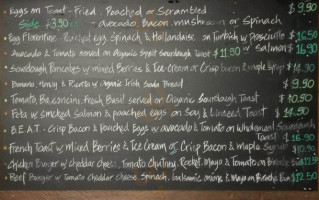 Eggs on Toast - Fried. Poached or Scrambled $9.90
Side +3.90 - avocado, Bacon. mushroom or Spinach
Egg Florentine - Poached egg, Spinach & Hollandaise on Turkish w Prosciutto $16.50
Avocado & Tomato served on Organic Soya Sourdough Toast $11.90 w Salmon $16.90
Sourdough Pancakes w mixed Berries & Ice-Cream or Crisp bacon & maple Syrup $14.90
Banana & Ricotta w organic Irish Soda Bread $9.90
Tomato, Bocconcini, Fresh Basil served on Organic Sourdough Toast $10.90
Feta w smoked Salmon & poached eggs on Soy & Linseed Toast $14.90
B.E.A.T. - Crisp Bacon & Poached Eggs w avocado & Tomato on Wholemeal Sourdough
Toast $16.90
French Toast w Mixed Berries & Ice Cream or Crisp Bacon & Maple Syrup $10.90
Chicken Burger w cheddar Cheese, Tomato Chutney, Rocket, Mayo & Tomato on Brioche Bun
Beef Burger w Tomato cheddar Cheese, Spinach, balsamic onions & Mayo on Brioche Bun $12.50